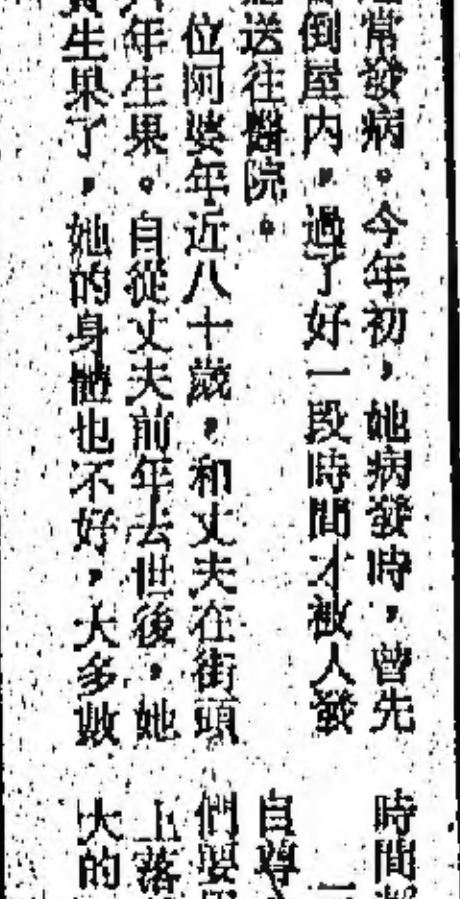 常發病。今年初，她病發時，曾先
倒屋内，過了好一段時間才被人發
送往醫院。
位阿婆年近八十歲，和丈夫在街頭
年生果。自從丈夫前年去世後，她
生果了，她的身體也不好，大多數
時間
自尊
們要
上落
大的